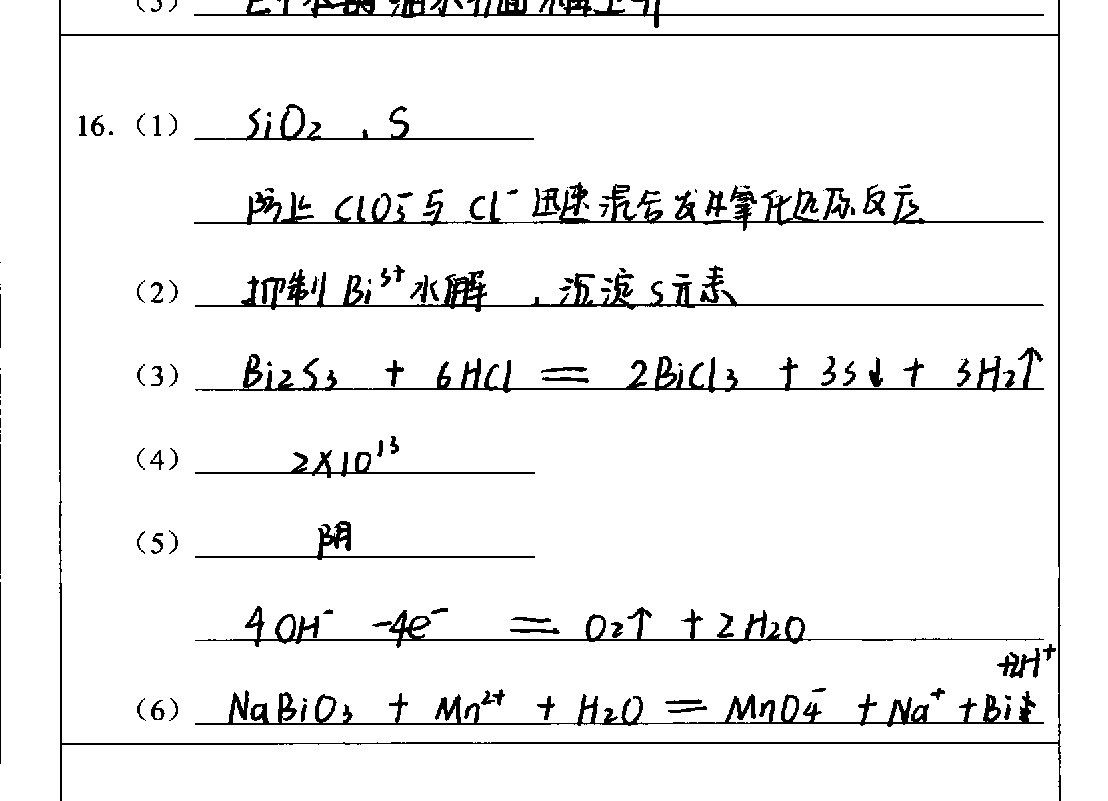 16.（1） SiO₂ 、S
防止 ClO₃⁻与 Cl⁻ 迅速混合发生氧化还原反应
（2） 抑制 Bi³⁺水解 ，沉淀S元素
（3） Bi₂S₃ + 6HCl = 2BiCl₃ + 3S↓ + 3H₂↑
（4） 2×10¹³
（5） 阴
4OH⁻ -4e⁻ = O₂↑ + 2H₂O
+2H⁺
（6） NaBiO₃ + Mn²⁺ + H₂O = MnO₄⁻ + Na⁺ + Bi↓